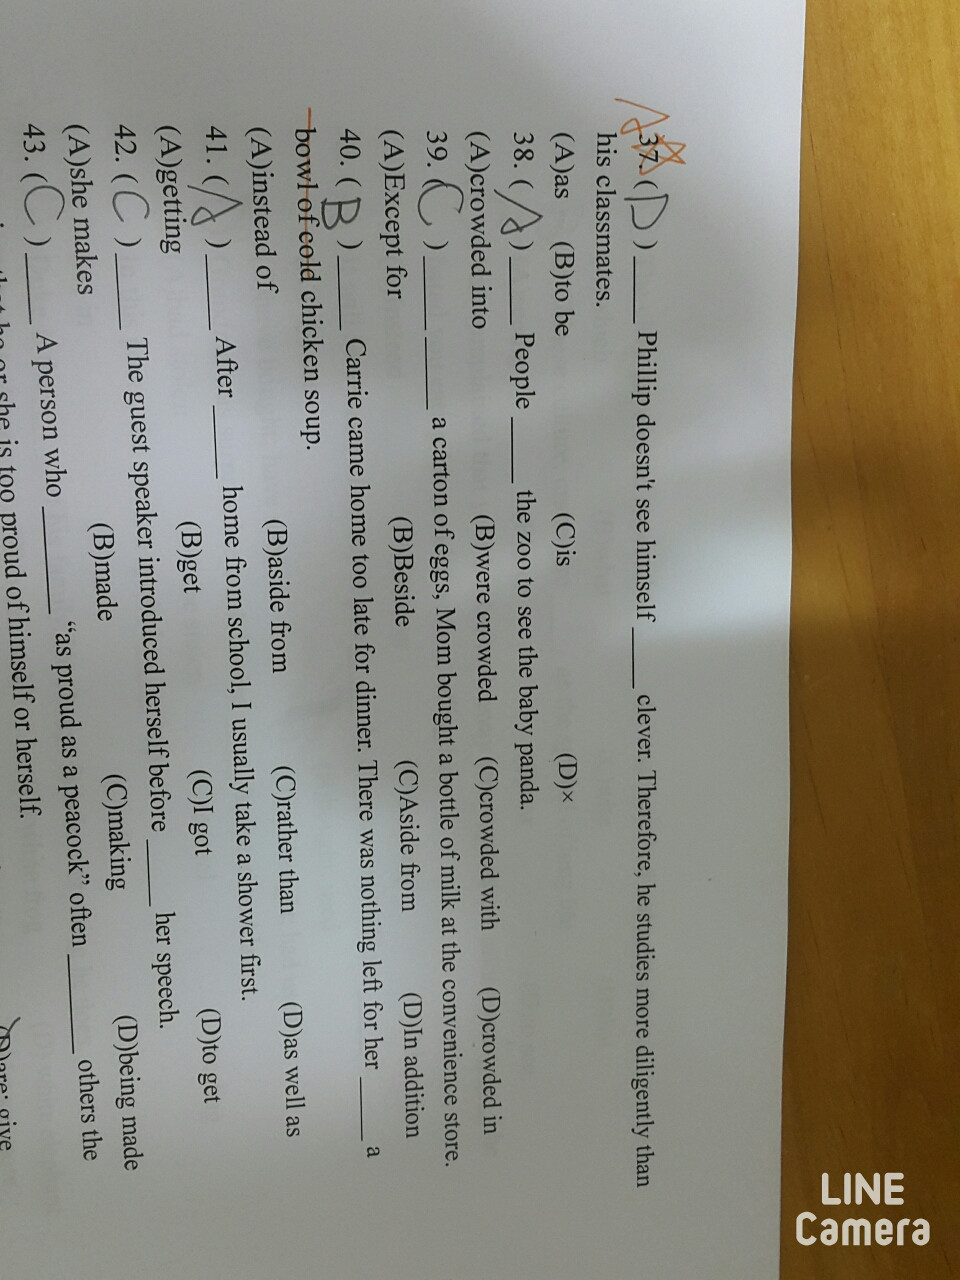 37. ( D ) _____ Phillip doesn't see himself _____ clever. Therefore, he studies more diligently than
his classmates.
(A)as (B)to be (C)is (D)×
38. ( A ) _____ People _____ the zoo to see the baby panda.
(A)crowded into (B)were crowded (C)crowded with (D)crowded in
39. ( C ) _____ _____ a carton of eggs, Mom bought a bottle of milk at the convenience store.
(A)Except for (B)Beside (C)Aside from (D)In addition
40. ( B ) _____ Carrie came home too late for dinner. There was nothing left for her _____ a
bowl of cold chicken soup.
(A)instead of (B)aside from (C)rather than (D)as well as
41. ( A ) _____ After _____ home from school, I usually take a shower first.
(A)getting (B)get (C)I got (D)to get
42. ( C ) _____ The guest speaker introduced herself before _____ her speech.
(A)she makes (B)made (C)making (D)being made
43. ( C ) _____ A person who _____ “as proud as a peacock” often _____ others the
that he or she is too proud of himself or herself.
(D)are; give
LINE
Camera